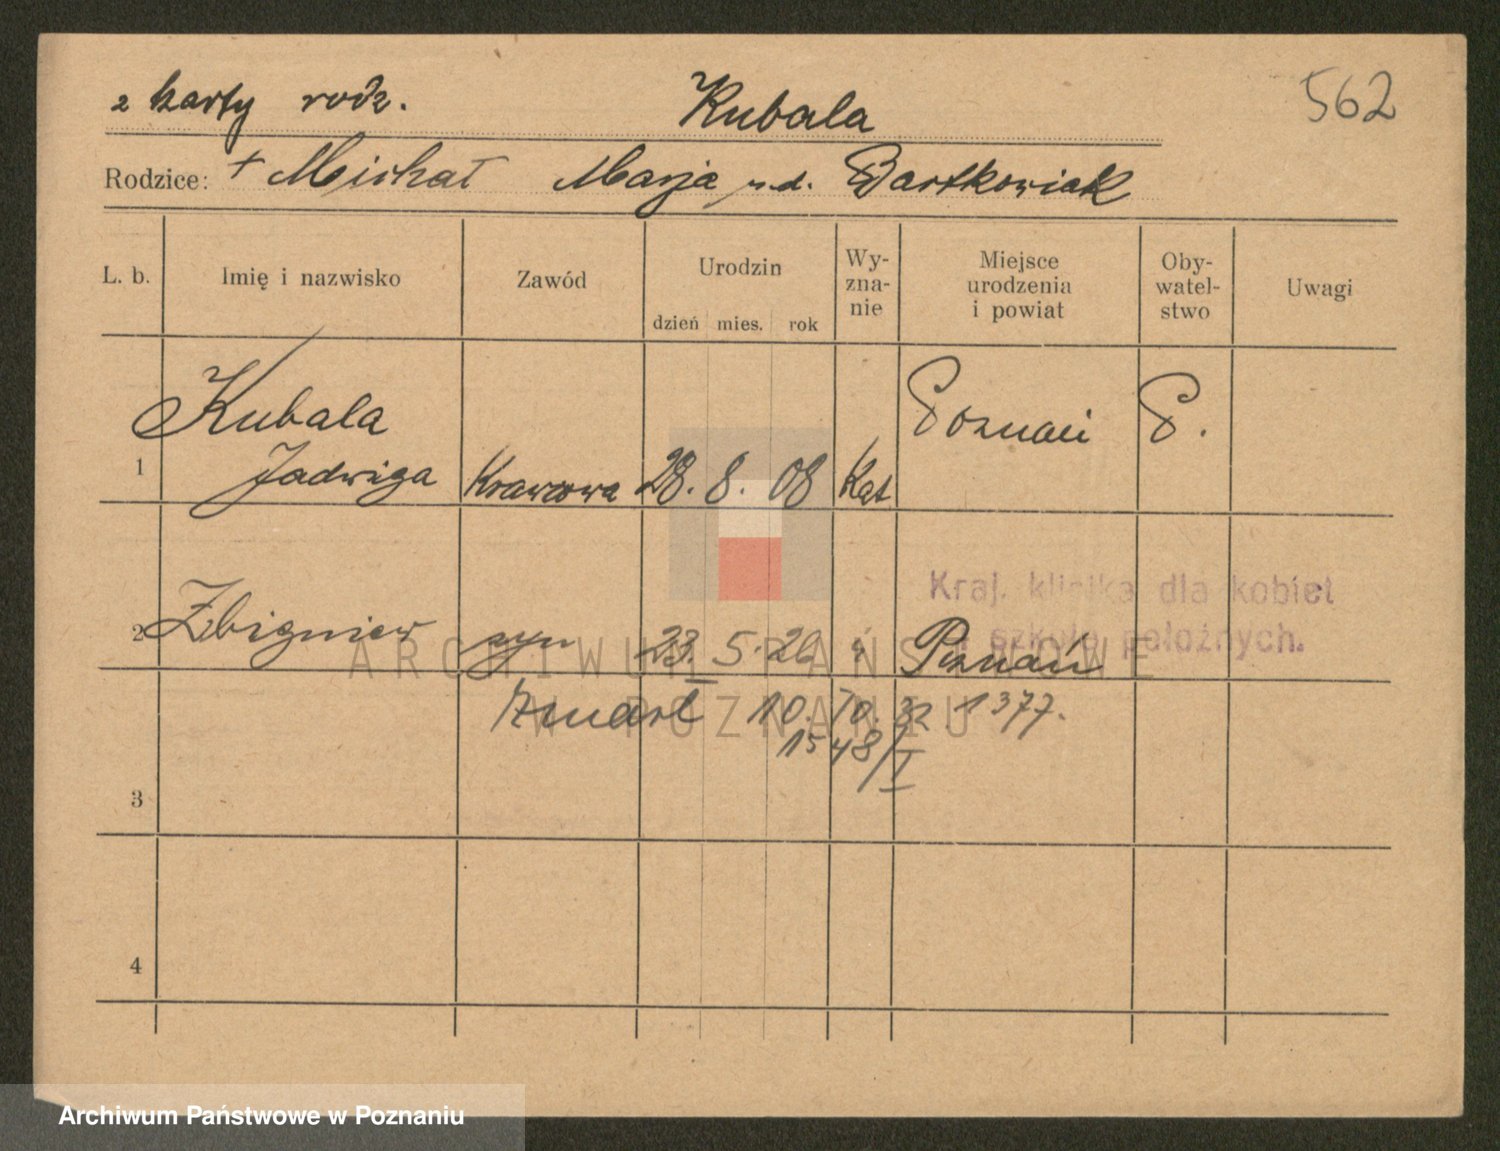 z karty rodz. Kubala 562
Rodzice: + Michał Marja u.d. Bartkowiak
L. b. Imię i nazwisko Zawód Urodzin dzień mies. rok Wy-zna-nie Miejsce urodzenia i powiat Oby-watel-stwo Uwagi
Kubala Poznań P.
1 Jadwiga Krawcowa 28. 8. 08 Kat
Kraj. klinika dla kobiet
i szkoła położnych.
2 Zbigniew syn 23. 5. 26 Poznań
Zmarł 10. 10. 32 1377.
1548/I
3
4
ARCHIWUM PAŃSTWOWE
W POZNANIU
Archiwum Państwowe w Poznaniu